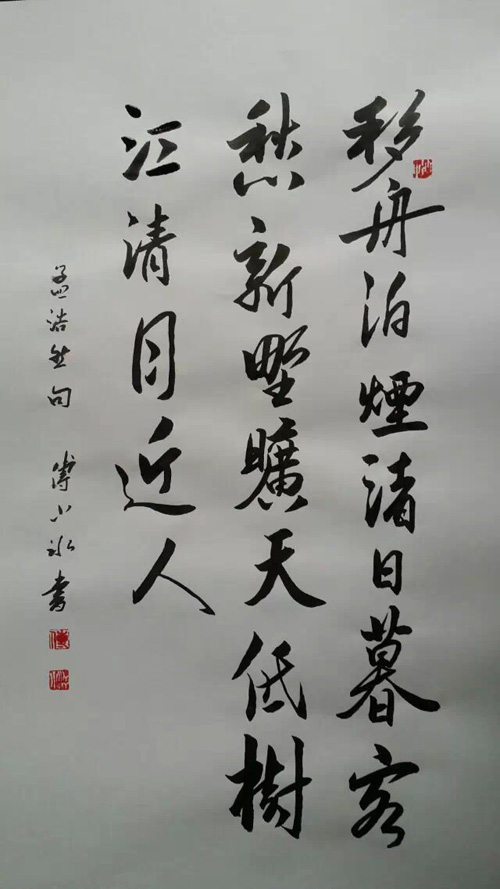 移舟泊煙渚日暮客
愁新野曠天低樹
江清月近人
孟浩然句 傅小冰書